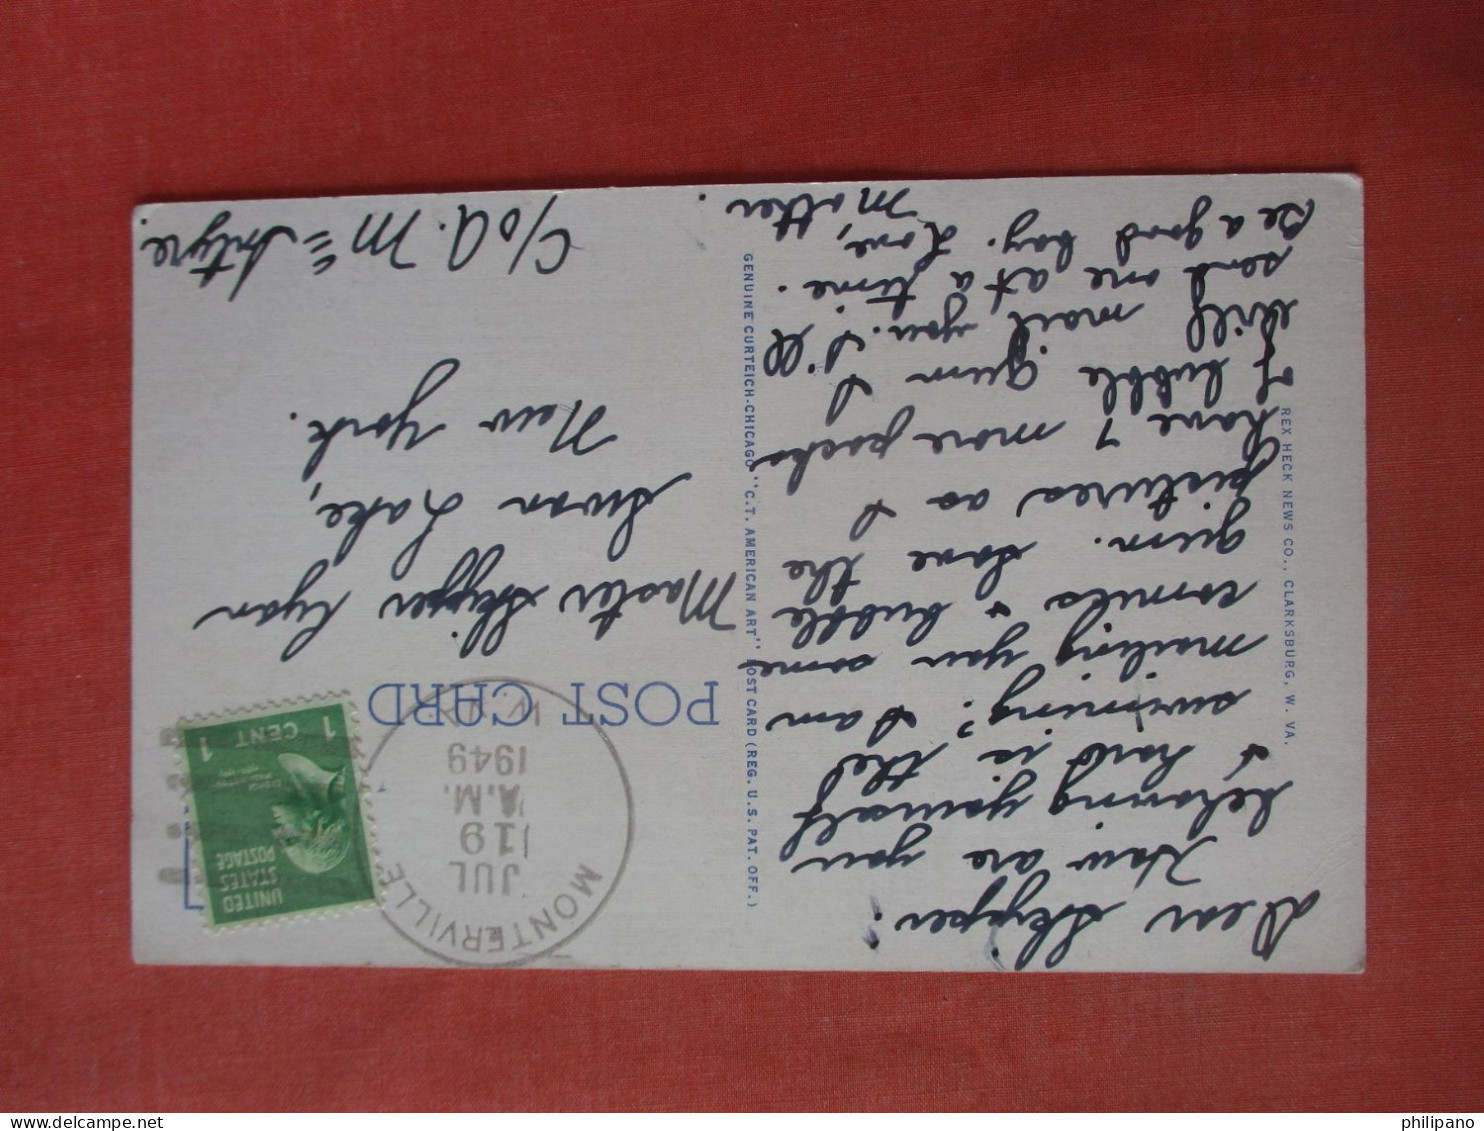 Dear Skipper:
How are you
behaving yourself
& how is the
swimming? I am
mailing you some
comics & bubble
gum. Save the
pictures as I
have 7 more packs
of bubble gum I
will mail you. I'll
send one at a time.
Be a good boy. Love,
Mother.
REX HECK NEWS CO., CLARKSBURG, W. VA.
GENUINE CURTEICH-CHICAGO "C.T. AMERICAN ART" POST CARD (REG. U.S. PAT. OFF.)
POST CARD
MONTERVILLE
JUL
19
A.M.
1949
W.VA.
UNITED
STATES
POSTAGE
1 CENT 1
Master Skipper Ryan
Swan Lake,
New York.
C/o A. McIntyre.
philipano